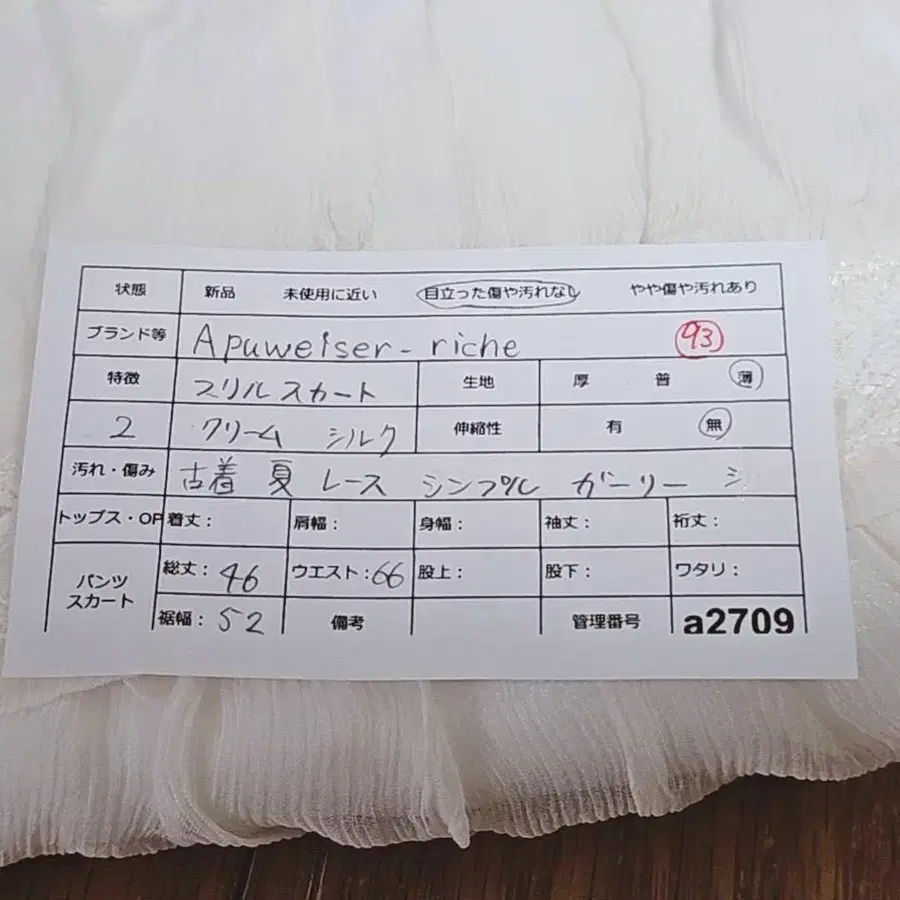 状態 新品 未使用に近い 目立った傷や汚れなし やや傷や汚れあり
ブランド等 Apuweiser-riche 93
特徴 フリルスカート 生地 厚 普 薄
2 クリーム シルク 伸縮性 有 無
汚れ・傷み 古着 夏 レース シンプル ガーリー
トップス・OP 着丈: 肩幅: 身幅: 袖丈: 裄丈:
パンツ スカート 総丈: 46 ウエスト: 66 股上: 股下: ワタリ:
裾幅: 52 備考 管理番号 a2709